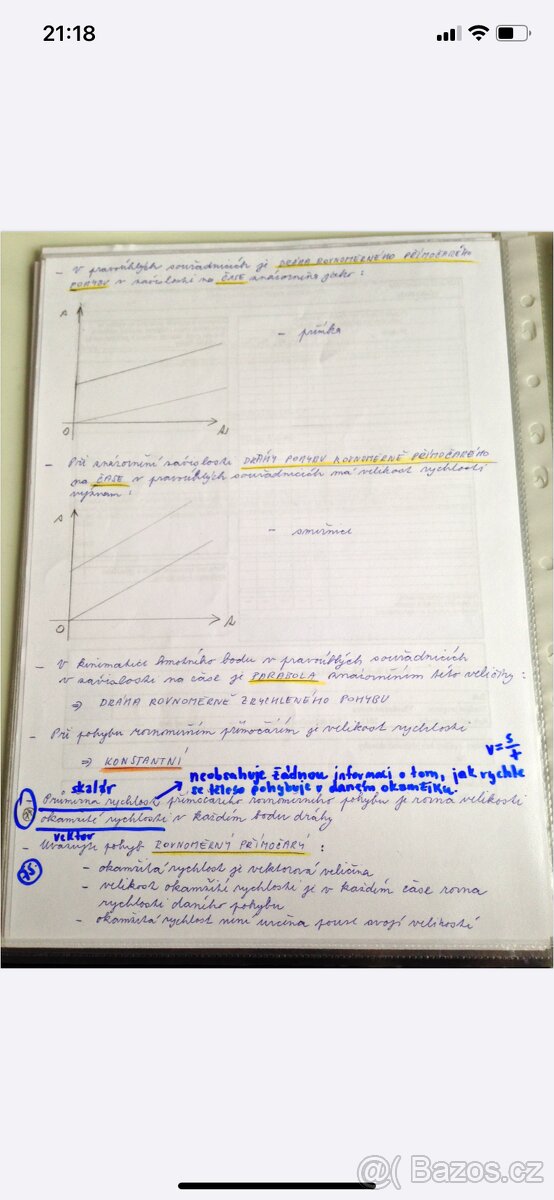 21:18
- V pravoúhlých souřadnicích je DRÁHA ROVNOMĚRNÉHO PŘÍMOČARÉHO
POHYBU v závislosti na ČASE znázorněna jako:
s
- přímka
0
t
- Při znázornění závislosti DRÁHY POHYBU ROVNOMĚRNĚ PŘÍMOČARÉHO
na ČASE v pravoúhlých souřadnicích má velikost rychlosti
význam:
s
- směrnice
0
t
- V kinematice hmotného bodu v pravoúhlých souřadnicích
v závislosti na čase je PARABOLA znázorněním této veličiny:
⇒ DRÁHA ROVNOMĚRNĚ ZRYCHLENÉHO POHYBU
- Při pohybu rovnoměrném přímočarém je velikost rychlosti
⇒ KONSTANTNÍ
v=s/t
skalár
neobsahuje žádnou informaci o tom, jak rychle
se těleso pohybuje v daném okamžiku.
- Průměrná rychlost přímočarého rovnoměrného pohybu je rovna velikosti
okamžité rychlosti v každém bodu dráhy
vektor
- Uvažujte pohyb ROVNOMĚRNÝ PŘÍMOČARÝ:
- okamžitá rychlost je vektorová veličina
- velikost okamžité rychlosti je v každém čase rovna
rychlosti daného pohybu
- okamžitá rychlost není určena pouze svojí velikostí
@( Bazos.cz